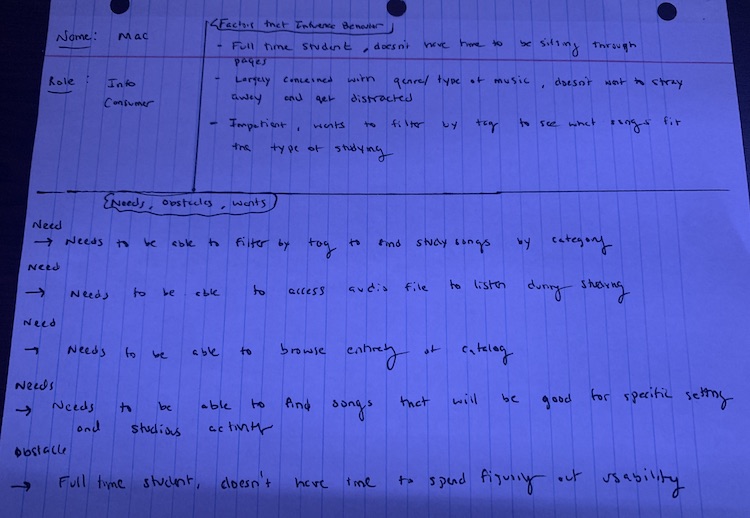 Name: Mac
Role: Info
Consumer
Factors that Influence Behavior
- Full time student, doesn't have time to be sifting through
pages
- Largely concerned with genre/type of music, doesn't want to stray
away and get distracted
- Impatient, wants to filter by tag to see what songs fit
the type of studying
Needs, obstacles, wants
Need
→ Needs to be able to filter by tag to find study songs by category
Need
→ Needs to be able to access audio file to listen during studying
Need
→ Needs to be able to browse entirety of catalog
Needs
→ Needs to be able to find songs that will be good for specific setting
and studious activity
Obstacle
→ Full time student, doesn't have time to spend figuring out usability